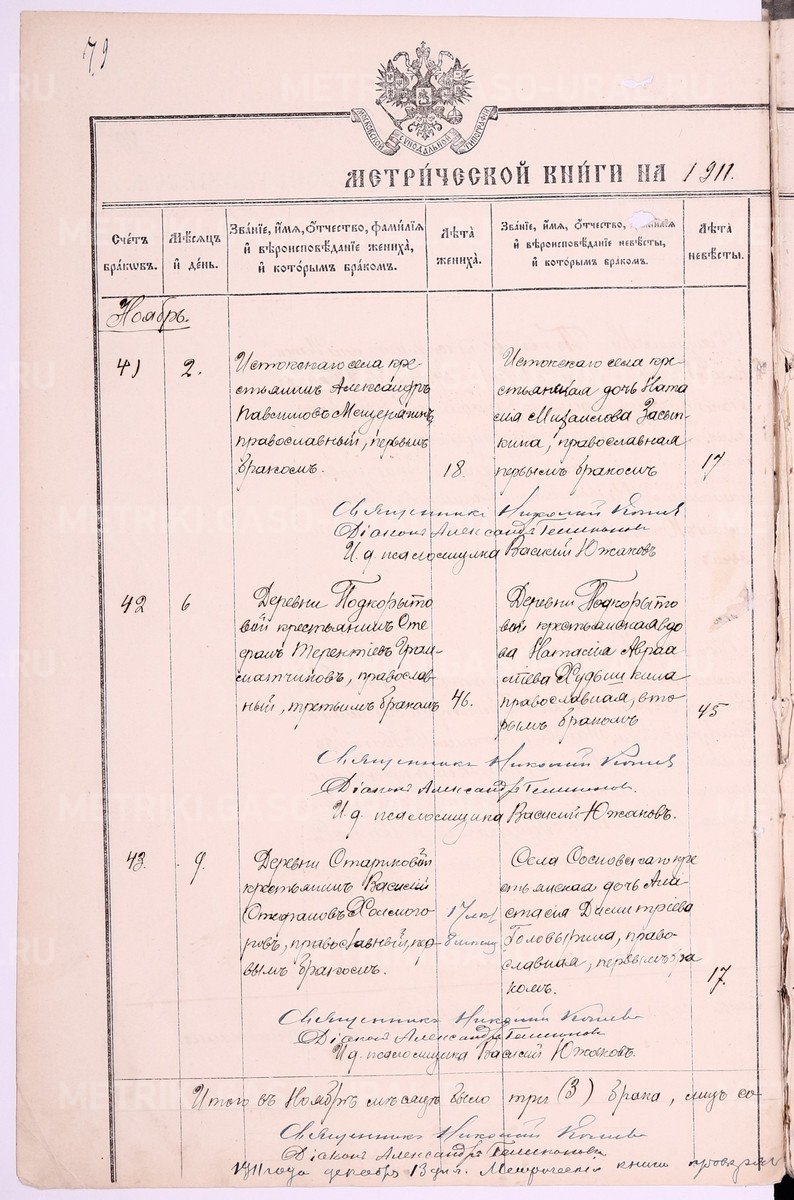 79
МЕТРИ́ЧЕСКОЙ КНИ́ГИ НА 1911.
Сче́тъ бра́кωвъ.
Мѣ́сяцъ и҆ де́нь.
Зва́нїе, и҆́мя, ѻ҆́тчество, фами́лїя и҆ вѣроисповѣ́данїе жениха̀, и҆ кото́рымъ бра́комъ.
Лѣ́та жениха̀.
Зва́нїе, и҆́мя, ѻ҆́тчество, фами́лїя и҆ вѣроисповѣ́данїе невѣ́сты, и҆ кото́рымъ бра́комъ.
Лѣ́та невѣ́сты.
Ноябрь.
41
2.
Истокскаго села кре-
стьянинъ Александръ
Павсимовъ Мещерягинъ
православный, первымъ
бракомъ.
18.
Истокскаго села кре-
стьянская дочь Ната
лія Михаилова Засып-
кина, православная
первымъ бракомъ
17
Священникъ Николай
Діаконъ Александръ
И. д. псаломщика Василій Южаковъ
42
6
Деревни Подкорыто
вой крестьянинъ Сте
фанъ Терентіевъ Грам-
матчиковъ, православ-
ный, третьимъ бракомъ
46.
Деревни Подкорыто
вой крестьянская вдо
ва Наталія Авраа
міева Худышкина
православная, вто-
рымъ бракомъ
45
Священникъ Николай
Діаконъ Александръ
И. д. псаломщика Василій Южаковъ.
43.
9.
Деревни Стариковой
крестьянинъ Василій
Стефановъ Холмого-
ровъ, православный, пер-
вымъ бракомъ.
17 лѣт
8 месяц
Села Сосновскаго кре
стьянская дочь Ана
стасія Димитріева
Головырина, право-
славная, первымъ бра
комъ.
17.
Священникъ Николай
Діаконъ Александръ
И. д. псаломщика Василій Южаковъ.
Итого въ Ноябрѣ мѣсяцѣ было три (3) брака, лицъ со-
Священникъ Николай
Діаконъ Александръ
1911 года декабря 13 дня. Метрическія книги